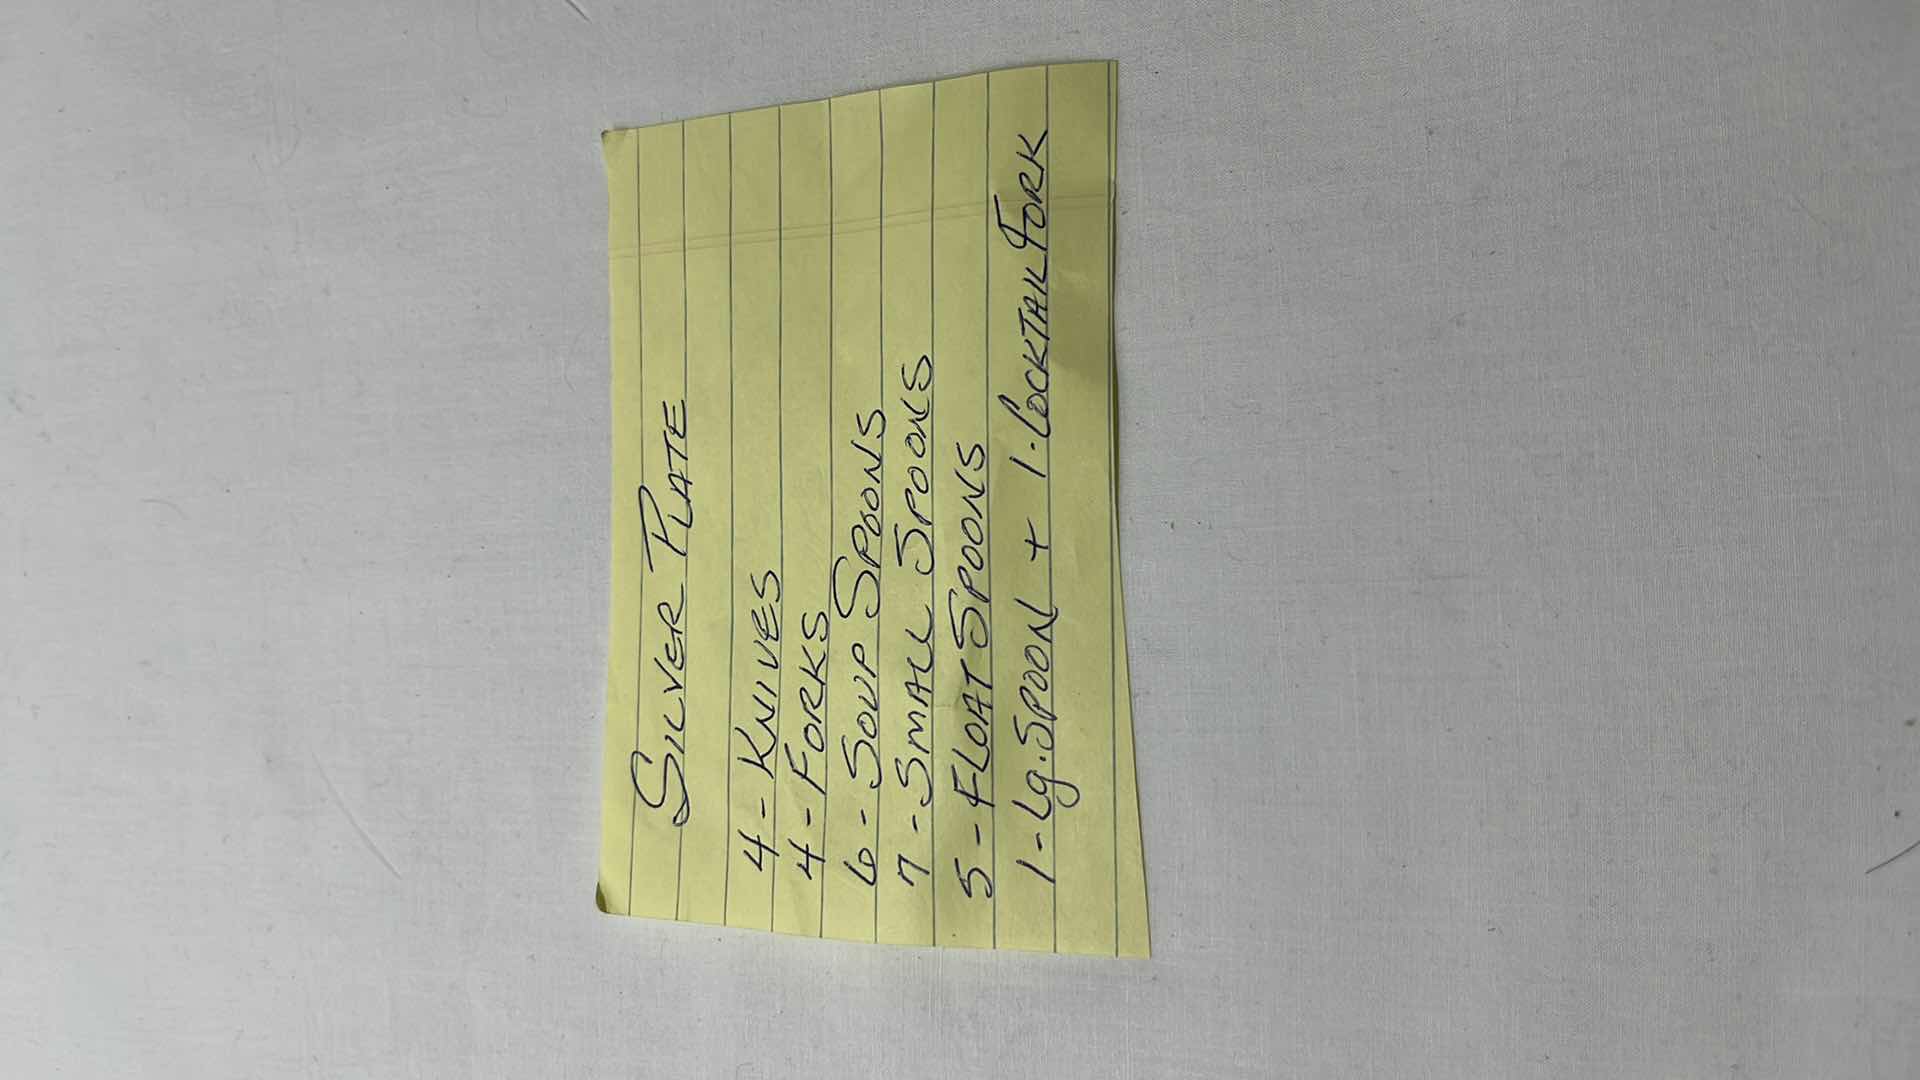 SILVER PLATE
4 - KNIVES
4 - FORKS
6 - SOUP SPOONS
7 - SMALL SPOONS
5 - FLOAT SPOONS
1 - Lg. SPOON + 1 - COCKTAIL FORK